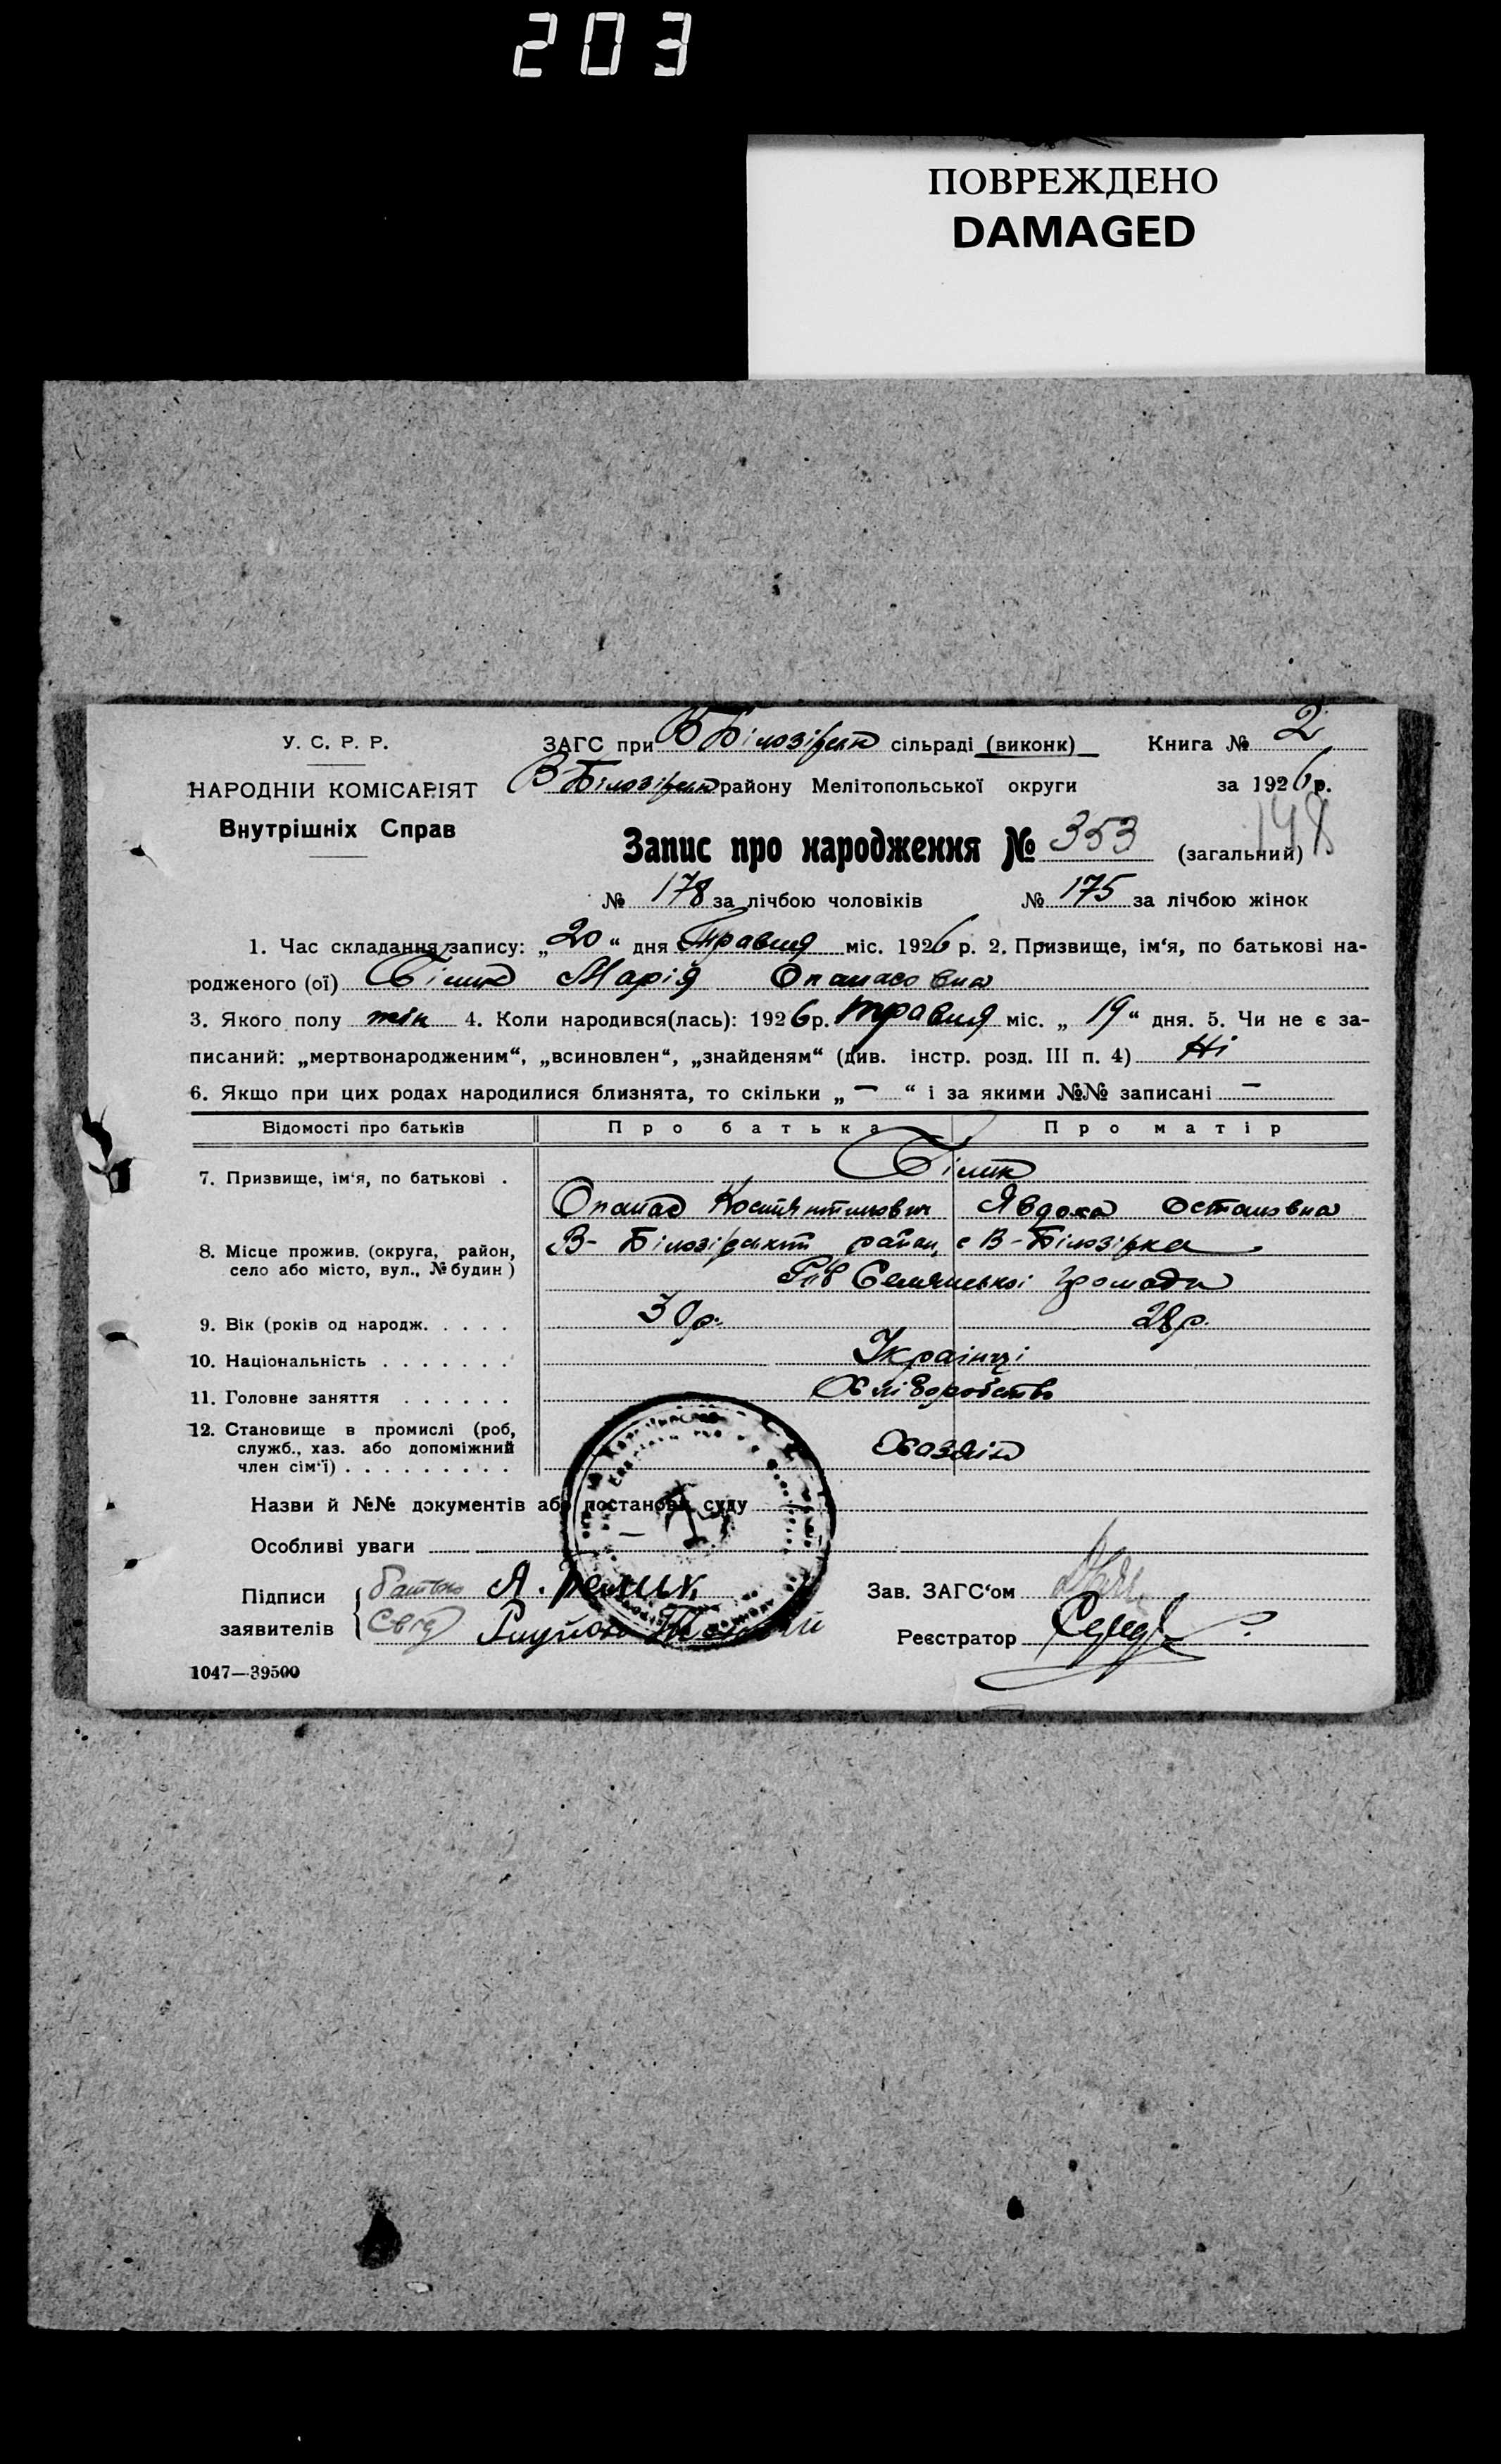 203
ПОВРЕЖДЕНО
DAMAGED
У. С. Р. Р.
НАРОДНІЙ КОМІСАРІЯТ
Внутрішніх Справ
ЗАГС при В Білозірськ сільраді (виконк) Книга № 2
В-Білозірськ району Мелітопольської округи за 1926 р.
148
Запис про народження № 353 (загальний)
№ 178 за лічбою чоловіків № 175 за лічбою жінок
1. Час складання запису: „20“ дня Травня міс. 1926 р. 2. Призвище, ім‘я, по батькові на-
родженого (ої) Білик Марія Опанасовна
3. Якого полу жін 4. Коли народився(лась): 1926 р. травня міс. „19“ дня. 5. Чи не є за-
писаний: „мертвонародженим“, „всиновлен“, „знайденям“ (див. інстр. розд. III п. 4) Ні
6. Якщо при цих родах народилися близнята, то скільки „ — “ і за якими №№ записані —
Відомості про батьків Про батька Про матір
7. Призвище, ім‘я, по батькові . Білик
Опанас Костянтинович Явдоха Остаповна
8. Місце прожив. (округа, район, село або місто, вул., № будин) В-Білозірський район с В-Білозірка
Селянської громади
9. Вік (років од народж. . . . . 30 р. 28 р.
10. Національність . . . . . . . Українці
11. Головне заняття . . . . . . Хліборобство
12. Становище в промислі (роб, служб., хаз. або допоміжний член сім‘ї) . . . . . . . . . Хазяїн
Назви й №№ документів або постанови суду
Особливі уваги
Підписи заявителів { батько А. Белик
Свід
Зав. ЗАГС‘ом
Реєстратор
1047—39500